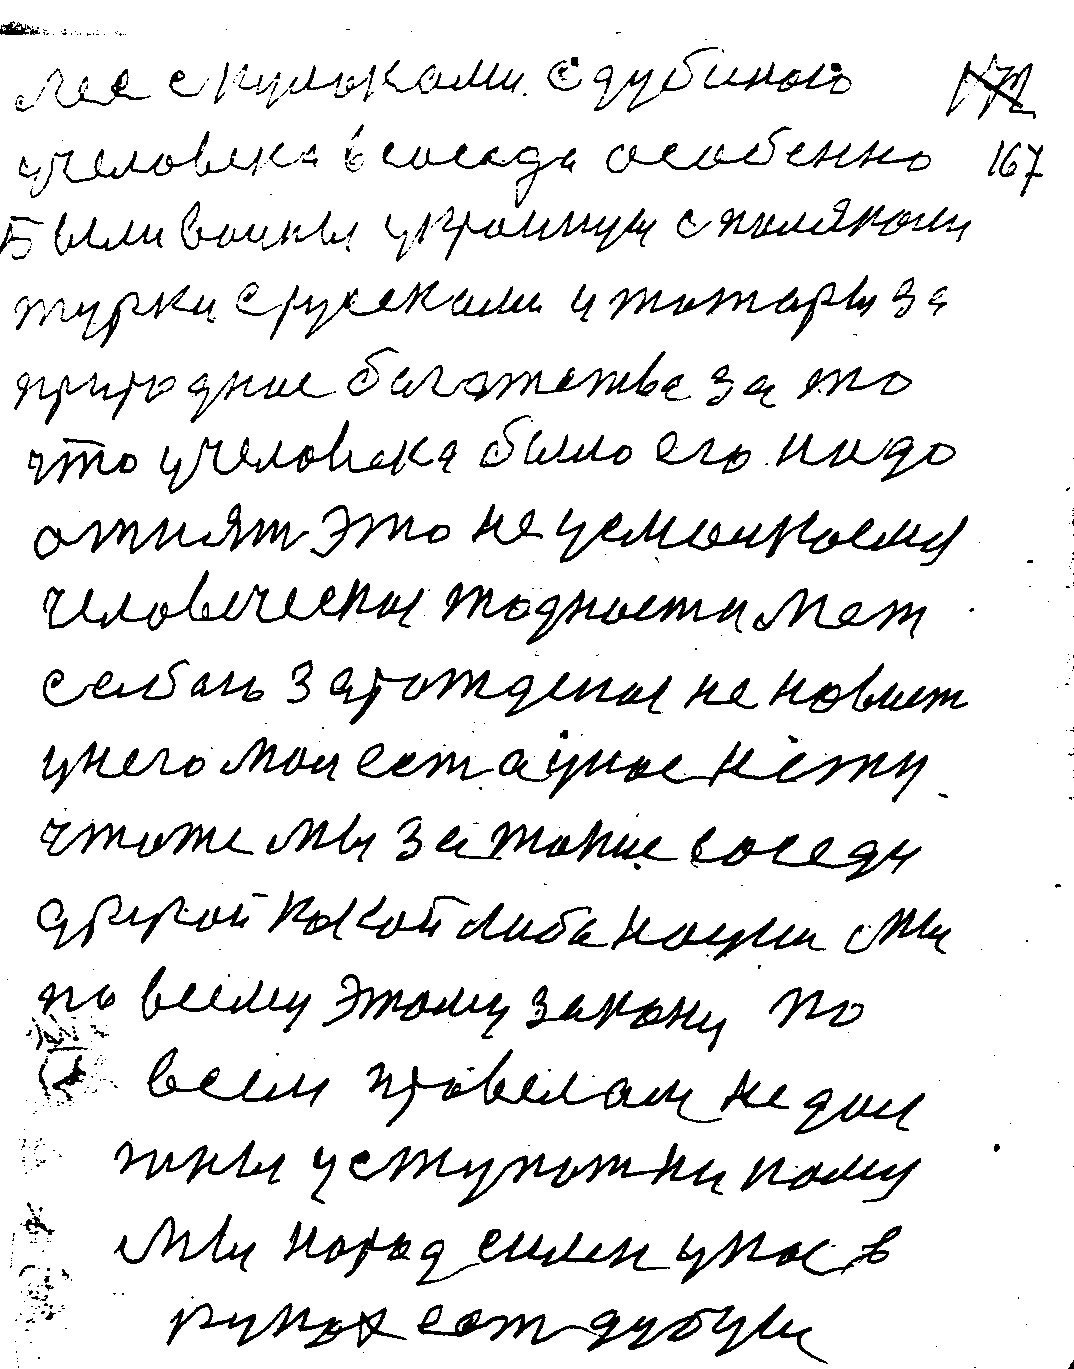 лее с кулоками с дубиною
учеловека всоседа особенно
Были воины украинцы споляками
турки сруссками и татары за
природние багатства за то
что учеловека было его надо
отнят это не усмоикаемя
человеческая жадност и мат
селбою зарождения не новеет
унего мол ест а унас нету
чтоже мы за такие соседи
другой какой либа нации мы
по всему этому закону по
всем провелам не дол
жны уступат ни кому
мы народ силен унас в
руках ест дубуы
167